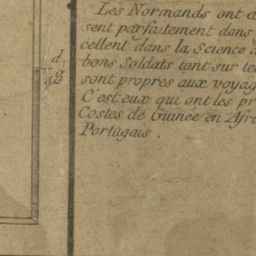 Les Normands ont
sent parfaitement dans
cellent dans la Science
bons Soldats tant sur
sont propres aux voyag
C'est eux qui ont les pr
Costes de Guinee en Afri
Portugais.